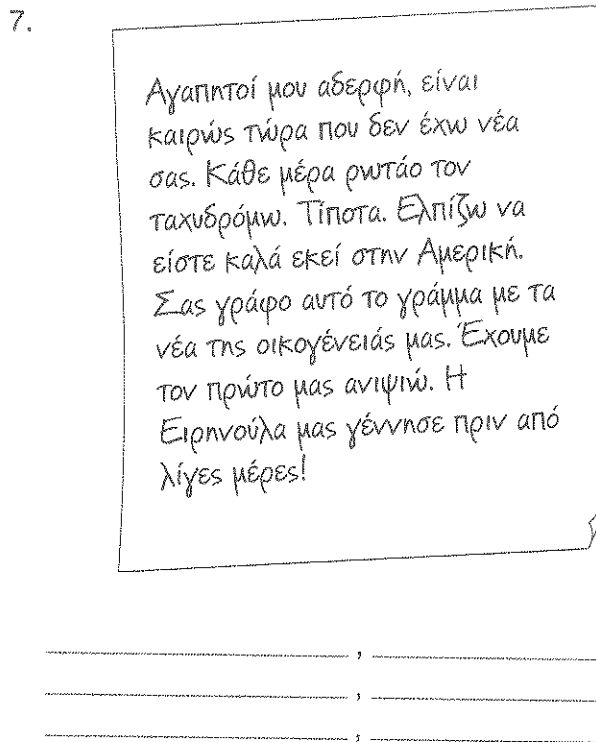 7.
Αγαπητοί μου αδερφή, είναι
καιρώς τώρα που δεν έχω νέα
σας. Κάθε μέρα ρωτάο τον
ταχυδρόμω. Τίποτα. Ελπίζω να
είστε καλά εκεί στην Αμερική.
Σας γράφο αυτό το γράμμα με τα
νέα της οικογένειάς μας. Έχουμε
τον πρώτο μας ανιψιώ. Η
Ειρηνούλα μας γέννησε πριν από
λίγες μέρες!
,
,
,